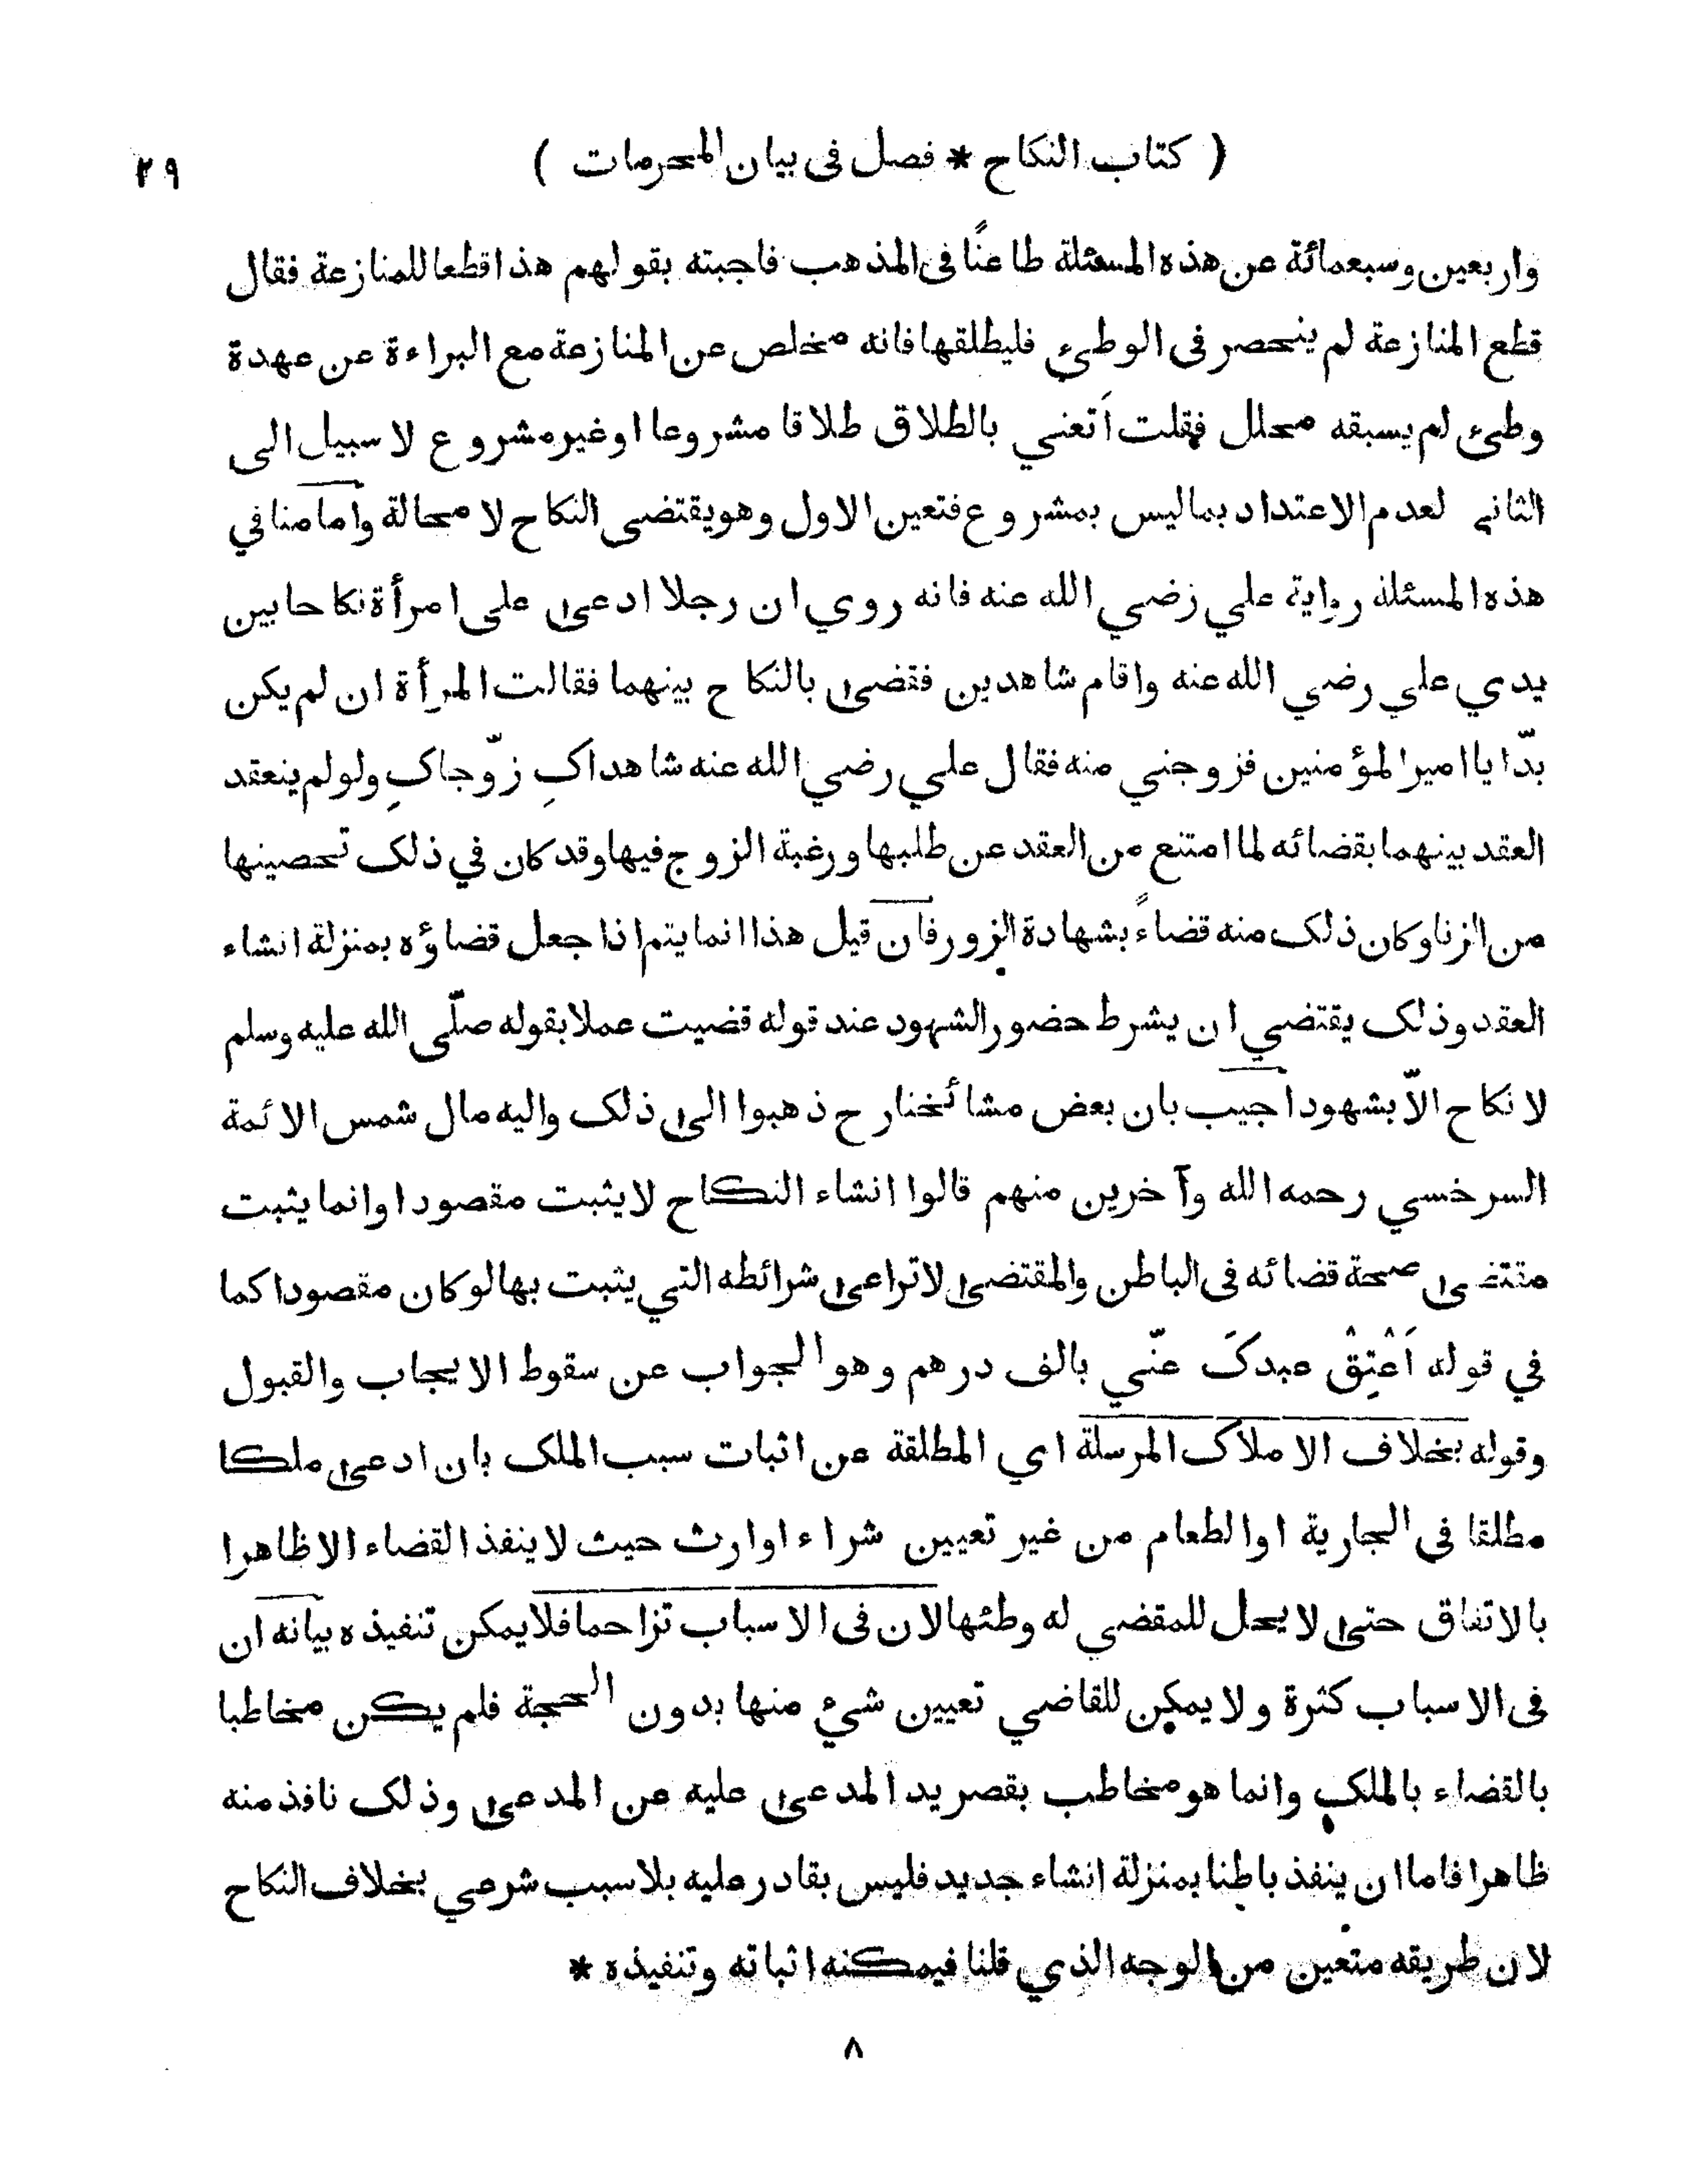 ( كتاب النكاح * فصل فى بيان المحرمات )
٢٩
واربعين وسبعمائة عن هذه المسئلة طاعنًا فى المذهب فاجبته بقولهم هذا قطعا للمنازعة فقال
قطع المنازعة لم ينحصر فى الوطىء فليطلقها فانه مخلص عن المنازعة مع البراءة عن عهدة
وطىء لم يسبقه محلل فقلت أتعني بالطلاق طلاقا مشروعا اوغير مشروع لا سبيل الى
الثاني لعدم الاعتداد بماليس بمشروع فتعين الاول وهو يقتضى النكاح لا محالة واما منافي
هذه المسئلة رواية علي رضي الله عنه فانه روي ان رجلا ادعى على امرأة نكاحا بين
يدي علي رضي الله عنه واقام شاهدين فقضى بالنكاح بينهما فقالت المرأة ان لم يكن
بدّا يا امير المؤمنين فزوجني منه فقال علي رضي الله عنه شاهداكِ زوّجاكِ ولو لم ينعقد
العقد بينهما بقضائه لما امتنع من العقد عن طلبها ورغبة الزوج فيها وقد كان في ذلك تحصينها
من الزنا وكان ذلك منه قضاءً بشهادة الزور فان قيل هذا انما يتم اذا جعل قضاؤه بمنزلة انشاء
العقد وذلك يقتضي ان يشرط حضور الشهود عند قوله قضيت عملا بقوله صلّى الله عليه وسلم
لا نكاح الاّ بشهود اجيب بان بعض مشائخنا رح ذهبوا الى ذلك واليه مال شمس الائمة
السرخسي رحمه الله وآخرين منهم قالوا انشاء النكاح لا يثبت مقصودا وانما يثبت
مقتضى صحة قضائه فى الباطن والمقتضى لا تراعى شرائطه التي يثبت بها لو كان مقصودا كما
في قوله اَعْتِقْ عبدكَ عنّي بالف درهم وهو الجواب عن سقوط الايجاب والقبول
وقوله بخلاف الاملاك المرسلة اي المطلقة عن اثبات سبب الملك بان ادعى ملكا
مطلقا فى الجارية او الطعام من غير تعيين شراء اوارث حيث لا ينفذ القضاء الا ظاهرا
بالاتفاق حتى لا يحل للمقضي له وطئها لان فى الاسباب تزاحما فلا يمكن تنفيذه بيانه ان
فى الاسباب كثرة ولا يمكن للقاضي تعيين شيء منها بدون الحجة فلم يكن مخاطبا
بالقضاء بالملك وانما هو مخاطب بقصر يد المدعى عليه عن المدعى وذلك نافذ منه
ظاهرا فاما ان ينفذ باطنا بمنزلة انشاء جديد فليس بقادر عليه بلا سبب شرعي بخلاف النكاح
لان طريقه متعين من الوجه الذي قلنا فيمكنه اثباته وتنفيذه *
٨